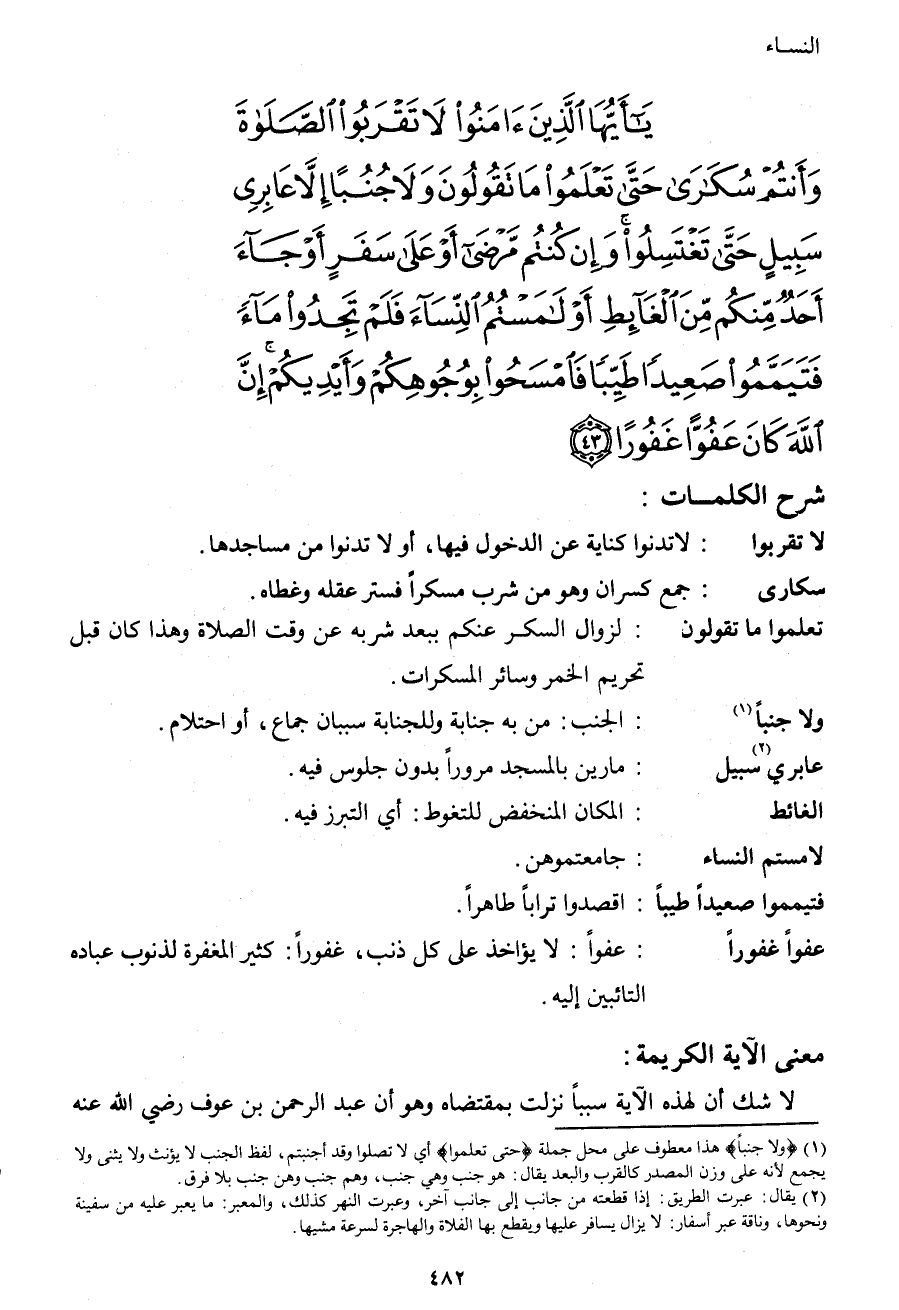 النساء
يَـٰٓأَيُّهَا ٱلَّذِينَ ءَامَنُوا۟ لَا تَقْرَبُوا۟ ٱلصَّلَوٰةَ
وَأَنتُمْ سُكَـٰرَىٰ حَتَّىٰ تَعْلَمُوا۟ مَا تَقُولُونَ وَلَا جُنُبًا إِلَّا عَابِرِى
سَبِيلٍ حَتَّىٰ تَغْتَسِلُوا۟ ۚ وَإِن كُنتُم مَّرْضَىٰٓ أَوْ عَلَىٰ سَفَرٍ أَوْ جَآءَ
أَحَدٌ مِّنكُم مِّنَ ٱلْغَآئِطِ أَوْ لَـٰمَسْتُمُ ٱلنِّسَآءَ فَلَمْ تَجِدُوا۟ مَآءً
فَتَيَمَّمُوا۟ صَعِيدًا طَيِّبًا فَٱمْسَحُوا۟ بِوُجُوهِكُمْ وَأَيْدِيكُمْ ۗ إِنَّ
ٱللَّهَ كَانَ عَفُوًّا غَفُورًا ﴿٤٣﴾
شرح الكلمات :
لا تقربوا : لاتدنوا كناية عن الدخول فيها، أو لا تدنوا من مساجدها.
سكارى : جمع كسران وهو من شرب مسكراً فستر عقله وغطاه.
تعلموا ما تقولون : لزوال السكر عنكم ببعد شربه عن وقت الصلاة وهذا كان قبل
تحريم الخمر وسائر المسكرات.
ولا جنباً(١) : الجنب: من به جنابة وللجنابة سببان جماع، أو احتلام.
عابري(٢) سبيل : مارين بالمسجد مروراً بدون جلوس فيه.
الغائط : المكان المنخفض للتغوط: أي التبرز فيه.
لامستم النساء : جامعتموهن.
فتيمموا صعيداً طيباً : اقصدوا تراباً طاهراً.
عفواً غفوراً : عفواً : لا يؤاخذ على كل ذنب، غفوراً: كثير المغفرة لذنوب عباده
التائبين إليه.
معنى الآية الكريمة :
لا شك أن لهذه الآية سبباً نزلت بمقتضاه وهو أن عبد الرحمن بن عوف رضي الله عنه
(١) ﴿ولا جنباً﴾ هذا معطوف على محل جملة ﴿حتى تعلموا﴾ أي لا تصلوا وقد أجنبتم، لفظ الجنب لا يؤنث ولا يثنى ولا
يجمع لأنه على وزن المصدر كالقرب والبعد يقال: هو جنب وهي جنب، وهم جنب وهن جنب بلا فرق.
(٢) يقال: عبرت الطريق: إذا قطعته من جانب إلى جانب آخر، وعبرت النهر كذلك، والمعبر: ما يعبر عليه من سفينة
ونحوها، وناقة عبر أسفار: لا يزال يسافر عليها ويقطع بها الفلاة والهاجرة لسرعة مشيها.
٤٨٢